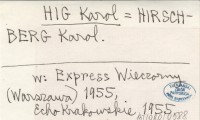 HIG Karol = HIRSCH-
BERG Karol.
w: Express Wieczorny
(Warszawa) 1955,
Echo Krakowskie, 1955